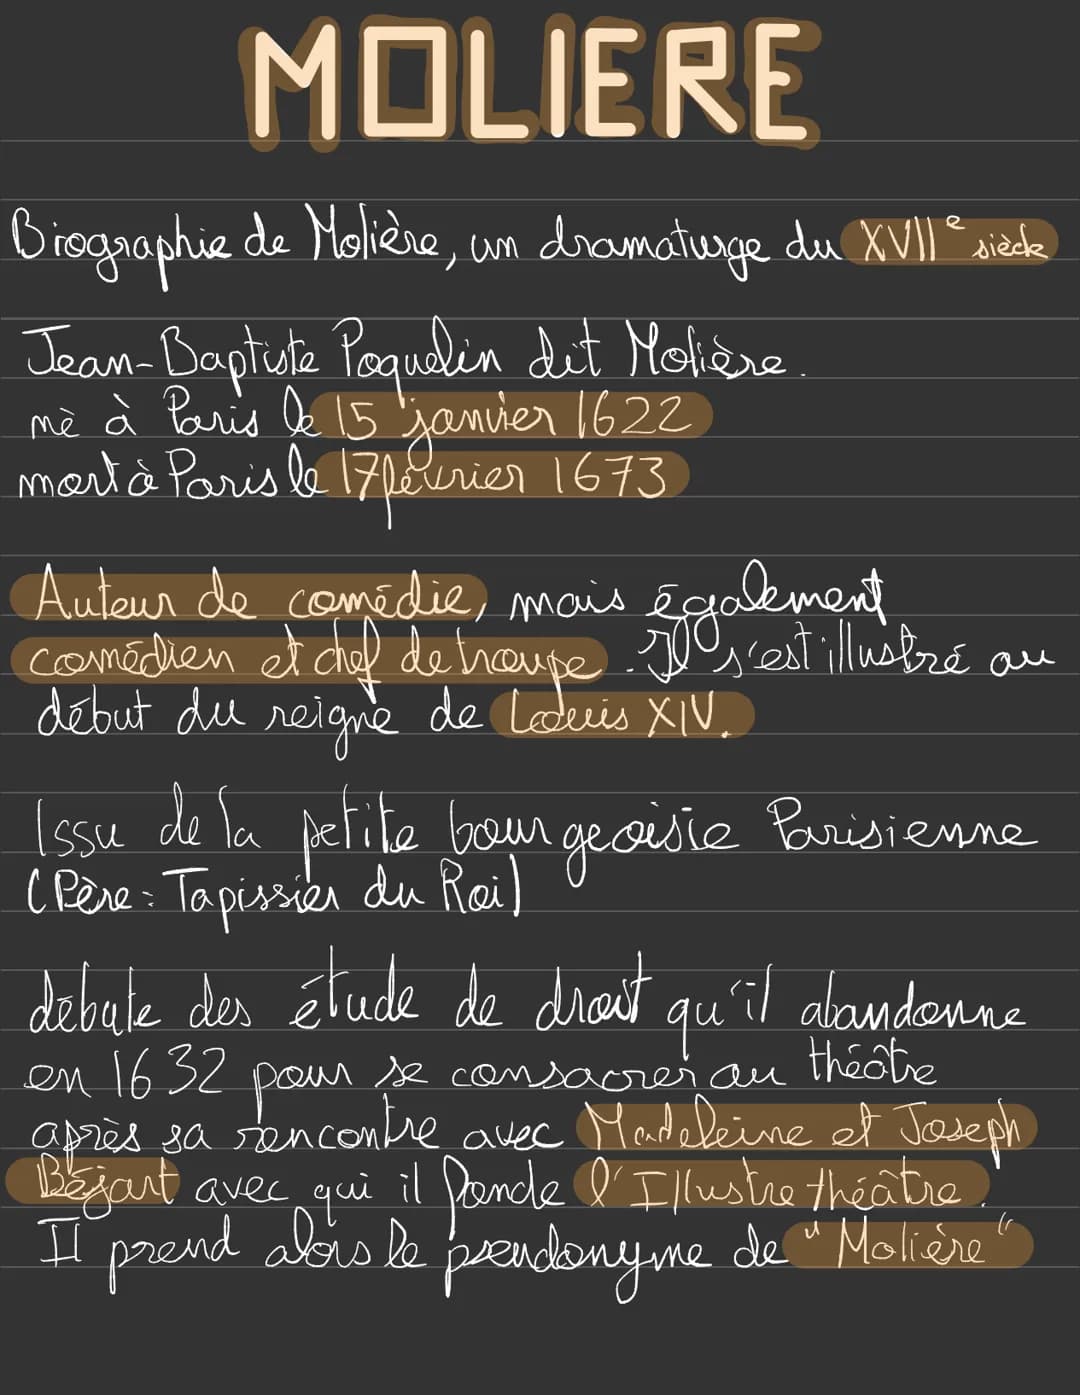 MOLIERE
Biographie de Molière, un dramaturge du XVIIe siècle
Jean-Baptiste Poquelin dit Molière.
né à Paris le 15 janvier 1622
mort à Paris le 17 février 1673
Auteur de comédie, mais également
comédien et chef de troupe. Il s'est illustré au
début du reigne de Louis XIV.
Issu de la petite bourgeoisie Parisienne
(Père : Tapissier du Roi)
débute des étude de droit qu'il abandonne
en 1632 pour se consacrer au théâtre
après sa rencontre avec Madeleine et Joseph
Béjart avec qui il fonde l'Illustre théâtre.
Il prend alors le pseudonyme de "Molière"